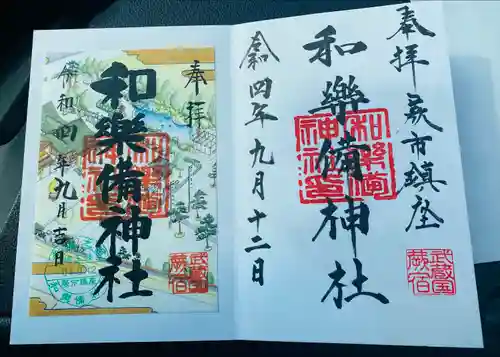 奉拝 蕨市鎮座
和樂備神社
和樂備神社之印
武蔵国
蕨宿
令和四年九月十二日
奉拝
和樂備神社
和樂備神社之印
武蔵国
蕨宿
令和四年九月吉日